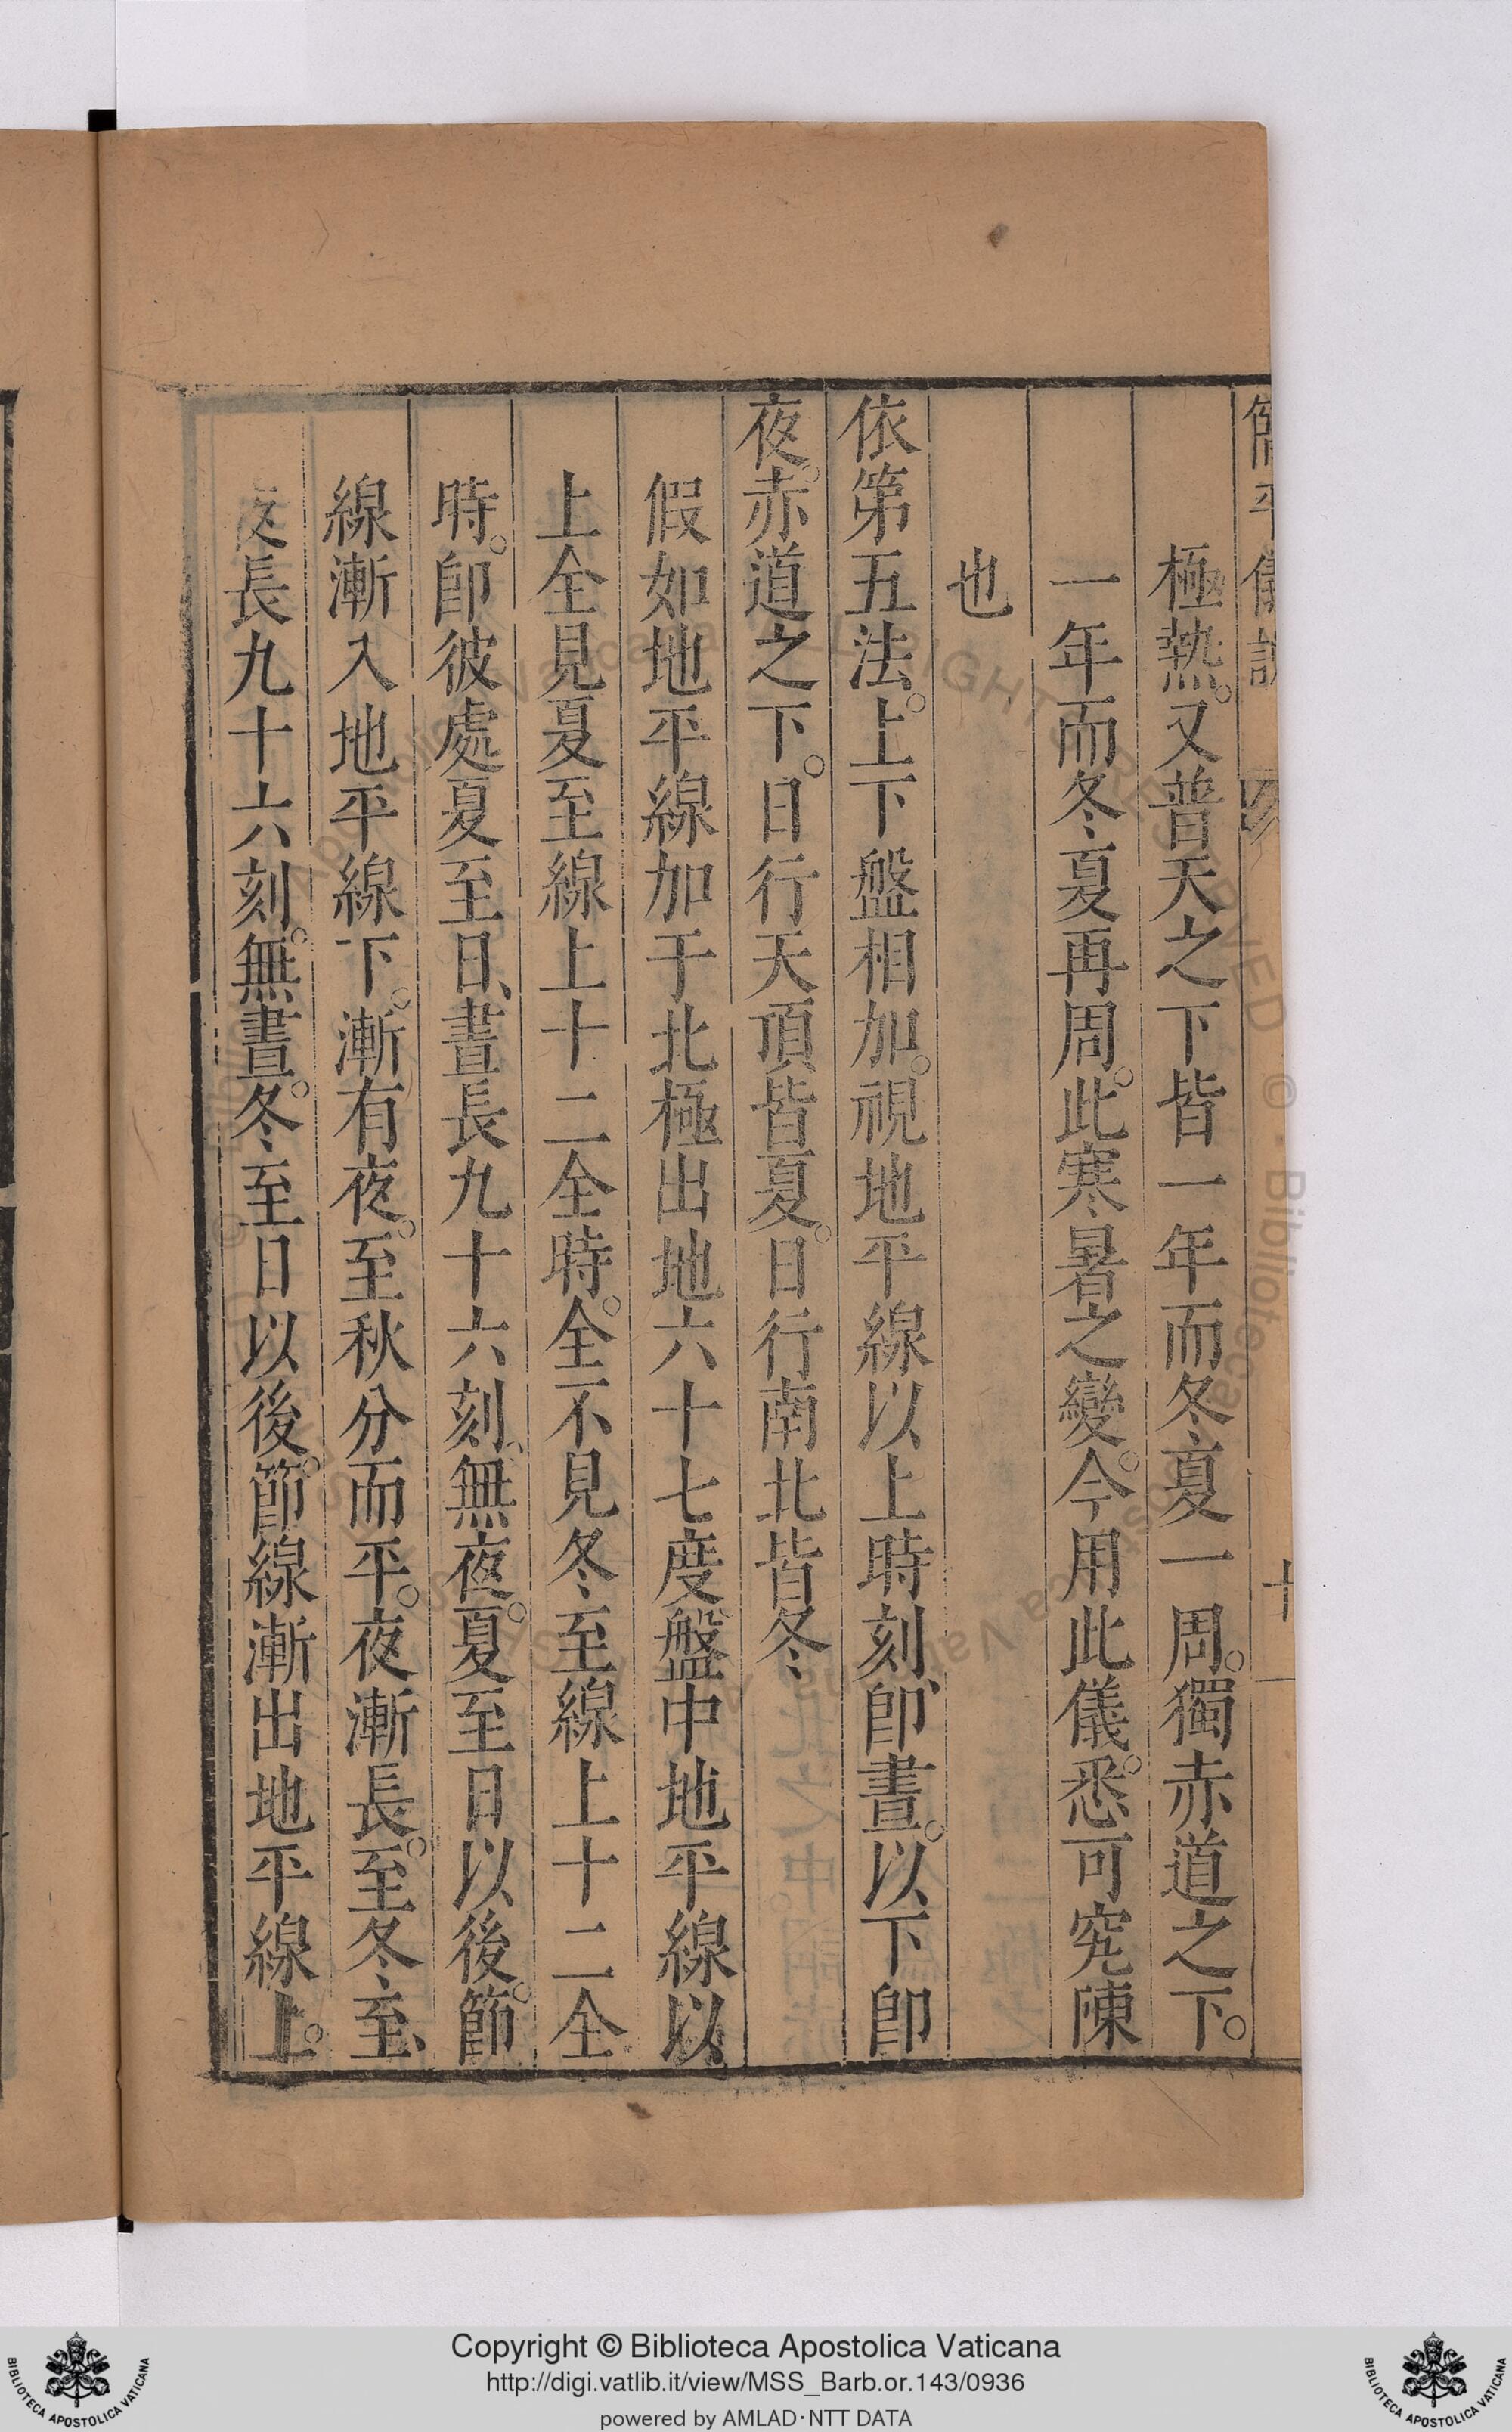 簡平儀說
十一
極熱。又普天之下皆一年而冬夏一周。獨赤道之下。
一年而冬夏再周。此寒暑之變。今用此儀。悉可究陳
也
依第五法。上下盤相加。視地平線以上時刻、卽晝。以下卽
夜。赤道之下。日行天頂皆夏。日行南北皆冬
假如地平線加于北極出地六十七度盤中地平線以
上全見夏至線上十二全時。全不見冬至線上十二全
時。卽彼處夏至日、晝長九十六刻、無夜。夏至日以後。節
線漸入地平線下。漸有夜。至秋分而平。夜漸長。至冬至、
夜長九十六刻。無晝。冬至日以後。節線漸出地平線上。
Copyright © Biblioteca Apostolica Vaticana
http://digi.vatlib.it/view/MSS_Barb.or.143/0936
powered by AMLAD·NTT DATA
BIBLIOTECA APOSTOLICA VATICANA
BIBLIOTECA APOSTOLICA VATICANA